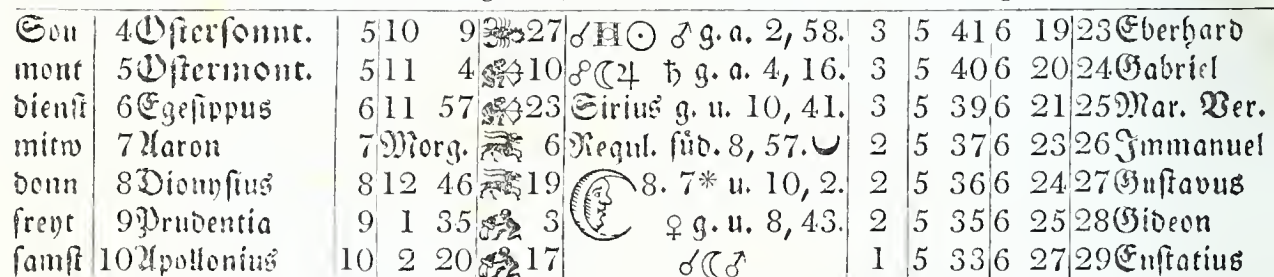 Son 4 Oſterſonnt. 5 10 9 27 ☌♅☉ ♂ g. a. 2, 58. 3 5 41 6 19 23 Eberhard
mont 5 Oſtermont. 5 11 4 10 ☍☾♃ ♄ g. a. 4, 16. 3 5 40 6 20 24 Gabriel
dienſt 6 Egeſippus 6 11 57 23 Sirius g. u. 10, 41. 3 5 39 6 21 25 Mar. Ver.
mitw 7 Aaron 7 Morg. 6 Regul. ſüd. 8, 57. 2 5 37 6 23 26 Immanuel
donn 8 Dionyſius 8 12 46 19 8. 7* u. 10, 2. 2 5 36 6 24 27 Guſtavus
freyt 9 Prudentia 9 1 35 3 ♀ g. u. 8, 43. 2 5 35 6 25 28 Gideon
ſamſt 10 Apollonius 10 2 20 17 ☌☾♂ 1 5 33 6 27 29 Euſtatius